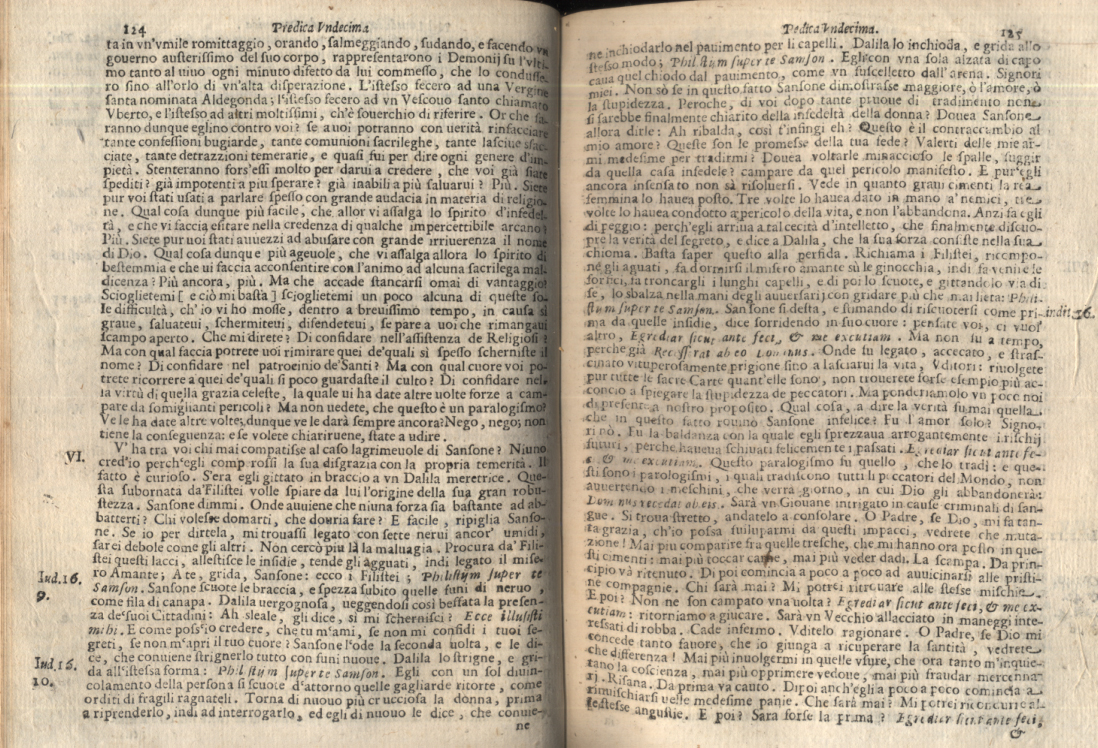 124 Predica Vndecima
ta in vn'vmile romittaggio, orando, salmeggiando, sudando, e facendo vn
gouerno austerissimo del suo corpo, rappresentarono i Demonij su l'vlti-
mo tanto al uiuo ogni minuto difetto da lui commesso, che lo condusse-
ro sino all'orlo di vn'alta disperazione. L'istesso fecero ad una Vergine
santa nominata Aldegonda; l'istesso fecero ad vn Vescouo santo chiamato
Vberto, e l'istesso ad altri moltissimi, ch'è souerchio di riferire. Or che fa-
ranno dunque eglino contro voi? se a uoi potranno con uerità rinfacciare
tante confessioni bugiarde, tante comunioni sacrileghe, tante lasciuie sfac-
ciate, tante detrazzioni temerarie, e quasi fui per dire ogni genere d'im-
pietà. Stenteranno fors'essi molto per darui a credere, che voi già siate
spediti? già impotenti a piu sperare? già inabili a più saluarui? Più. Siete
pur voi stati usati a parlare spesso con grande audacia in materia di religio-
ne. Qual cosa dunque più facile, che allor vi assalga lo spirito d'infedel-
tà, e che vi faccia esitare nella credenza di qualche impercettibile arcano?
Più. Siete pur uoi stati auuezzi ad abusare con grande irriuerenza il nome
di Dio. Qual cosa dunque più ageuole, che vi assalga allora lo spirito di
bestemmia e che ui faccia acconsentire con l'animo ad alcuna sacrilega mal-
dicenza? Più ancora, più. Ma che accade stancarsi omai di vantaggio?
Scioglietemi [ e ciò mi basta ] scioglietemi un poco alcuna di queste so-
le difficultà, ch'io vi ho mosse, dentro a breuissimo tempo, in causa sì
graue, saluateui, schermiteui, difendeteui, se pare a uoi che rimangaui
scampo aperto. Che mi direte? Di confidare nell'assistenza de Religiosi?
Ma con qual faccia potrete uoi rimirare quei de'quali sì spesso schernistе il
nome? Di confidare nel patrocinio de'Santi? Ma con qual cuore voi po-
trete ricorrere a quei de'quali si poco guardaste il culto? Di confidare nel-
la virtù di quella grazia celeste, la quale ui ha date altre uolte forze a cam-
pare da somiglianti pericoli? Ma non uedete, che questo è un paralogismo?
Ve le ha date altre volte, dunque ve le darà sempre ancora? Nego, nego; non
tiene la conseguenza: e se volete chiarirune, state a udire.
VI. V'ha tra voi chi mai compatisse al caso lagrimeuole di Sansone? Niuno
cred'io perch'egli comprossi la sua disgrazia con la propria temerità. Il
fatto è curioso. S'era egli gittato in braccio a vn Dalila meretrice. Que-
sta subornata da'Filistei volle spiare da lui l'origine della sua gran robu-
stezza. Sansone dimmi. Onde auuiene che niuna forza sia bastante ad ab-
batterti? Chi volesse domarti, che douria fare? E facile, ripiglia Sanso-
ne. Se io per dirtela, mi trouassi legato con sette nerui ancor' umidi,
sarei debole come gli altri. Non cercò piu là la maluagia. Procura da' Fili-
stei questi lacci, allestisce le insidie, tende gli agguati, indi legato il mise-
Iud.16. ro Amante; A te, grida, Sansone: ecco i Filistei; Philistiim super te
9. Samson. Sansone scuote le braccia, e spezza subito quelle funi di neruo,
come fila di canapa. Dalila uergognosa, ueggendosi così beffata la presen-
za de'suoi Cittadini: Ah sleale, gli dice, sì mi schernisci? Ecce illusisti
mihi. E come poss'io credere, che tu m'ami, se non mi confidi i tuoi se-
greti, se non m'apri il tuo cuore? Sansone l'ode la seconda uolta, e le di-
Iud.16. ce, che conuiene strignerlo tutto con funi nuoue. Dalila lo strigne, e gri-
10. da all'istessa forma: Philistiim super te Samson. Egli con un sol diuin-
colamento della persona si scuote d'attorno quelle gagliarde ritorte, come
orditi di fragili ragnateli. Torna di nuouo più crucciosa la donna, prima
a riprenderlo, indi ad interrogarlo, ed egli di nuouo le dice, che conuie-
ne
Pedica Vndecima. 125
ne inchiodarlo nel pauimento per li capelli. Dalila lo inchioda, e grida allo
stesso modo; Philistiim super te Samson. Egli con vna sola alzata di capo
caua quel chiodo dal pauimento, come vn fuscelletto dall'arena. Signori
miei. Non sò se in questo fatto Sansone dimostrasse maggiore, ò l'amore, ò
la stupidezza. Peroche, di voi dopo tante pruoue di tradimento non
si sarebbe finalmente chiarito della infedeltà della donna? Douea Sansone
allora dirle: Ah ribalda, così t'infingi eh? Questo è il contraccambio al
mio amore? Queste son le promesse della tua fede? Valerti delle mie ar-
mi medesime per tradirmi? Douea voltarle minaccioso le spalle, fuggir
da quella casa infedele? campare da quel pericolo manifesto. E pur'egli
ancora insensato non sà risoluersi. Vede in quanto graui cimenti la rea
femmina lo hauea posto. Tre volte lo hauea dato in mano a'nemici, tre
volte lo hauea condotto a pericolo della vita, e non l'abbandona. Anzi fa egli
di peggio: perch'egli arriua a tal cecità d'intelletto, che finalmente discuo-
pre la verità del segreto, e dice a Dalila, che la sua forza consiste nella sua
chioma. Basta saper questo alla perfida. Richiama i Filistei, ricompo-
ne gli aguati, fa dormirsi il misero amante sù le ginocchia, indi fa venir le
forfici, fa troncargli i lunghi capelli, e di poi lo scuote, e gittandolo via di
se, lo sbalza nella mani degli auuersarij con gridare più che mai lieta: Phili-
stiim super te Samson. Sansone si desta, e stimando di riscuotersi come pri- Iudit.16.
ma da quelle insidie, dice sorridendo in suo cuore: pensate voi, ci vuol
altro, Egrediar sicut ante feci, & me excutiam. Ma non fu a tempo,
perche già Recesserat ab eo Dominus. Onde fu legato, accecato, e stras-
cinato vituperosamente prigione sino a lasciarui la vita, Vditori: riuolgete
pur tutte le sacre Carte quant'elle sono, non trouerete forse esempio più ac-
concio a spiegare la stupidezza de peccatori. Ma ponderiamolo vn poco noi
di presente a nostro proposito. Qual cosa, a dire la verità fu mai quella
che in questo fatto rouinò Sansone infelice? Fu l'amor solo? Signo-
ri nò. Fu la baldanza con la quale egli sprezzaua arrogantemente i rischij
futuri, perche haueua schiuati felicemente i passati. Egrediar sicut ante fe-
ci & me excutiam. Questo paralogismo fu quello, che lo tradì: e que-
sti sono i parologismi, i quali tradiscono tutti li peccatori del Mondo, non
auuertendo i meschini, che verrà giorno, in cui Dio gli abbandonerà:
Dominus recedat ab eis. Sarà vn Giouane intrigato in cause criminali di san-
gue. Si troua stretto, andatelo a consolare. O Padre, se Dio, mi fa tan-
ta grazia, ch'io possa suiluparmi da questi impacci, vedrete che muta-
zione! Mai piu comparire fra quelle tresche, che mi hanno ora posto in que-
sti cimenti: mai più toccar carte, mai più veder dadi. La scampa. Da prin-
cipio và ritenuto. Di poi comincia a poco a poco ad auuicinarsi alle pristi-
ne compagnie. Chi sarà mai? Mi potrei ritrouare alle stesse mischie.
E poi? Non ne son campato vna uolta? Egrediar sicut ante feci, & me ex-
cutiam: ritorniamo a giucare. Sarà vn Vecchio allacciato in maneggi inte-
ressati di robba. Cade infermo. Vditelo ragionare. O Padre, se Dio mi
concede tanto fauore, che io giunga a ricuperare la santità, vedrete
che differenza! Mai più inuolgermi in quelle vsure, che ora tanto m'inquie-
tano la coscienza, mai più opprimere vedoue, mai più fraudar mercenna-
ri. Risana. Da prima va cauto. Dipoi anch'egli a poco a poco comincia a
rimischiarsi nelle medesime panie. Che sarà mai? Mi potrei ricondurre al-
le stesse angustie. E poi? Sara forse la prima? Egrediar sicut ante feci,
&